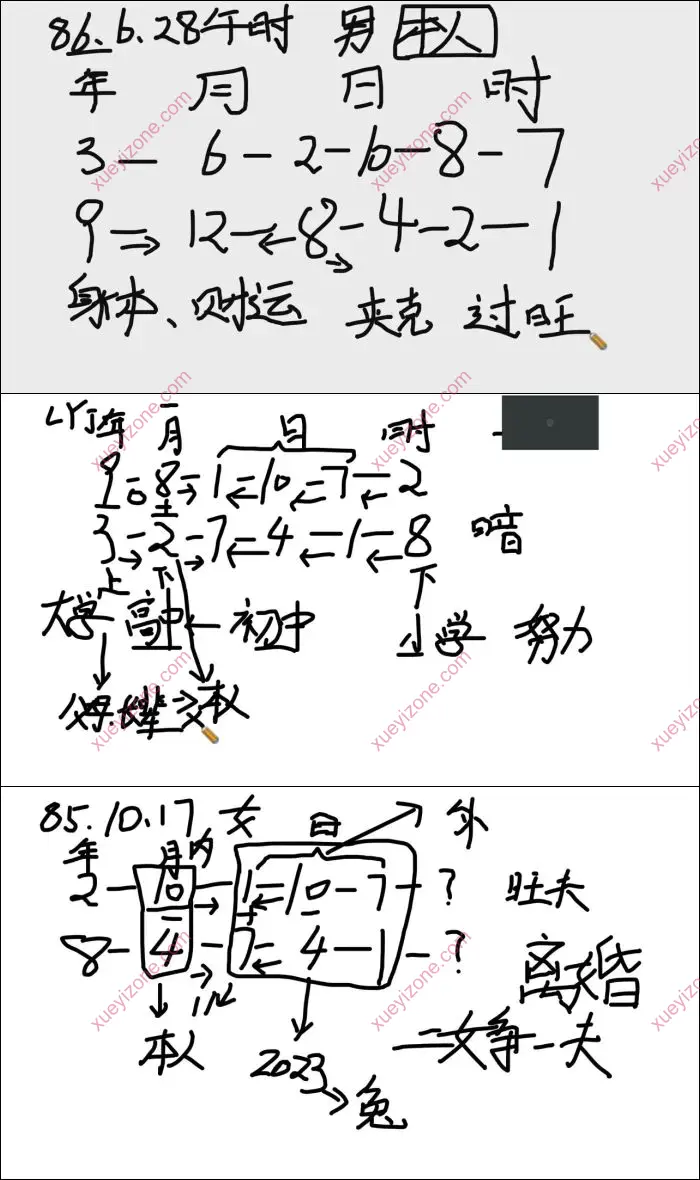 86.6.28午时 男 本人
年 月 日 时
3 — 6 - 2 - 10 - 8 - 7
9 → 12 ← 8 - 4 - 2 - 1
身体、财运 夹克 过旺
LYJ年 月 日 时
9 = 8 = 1 = 10 = 7 - 2
3 - 2 - 7 = 4 = 1 = 8 暗
上 下 下
大学 高中 ← 初中 小学 努力
父母 长辈 → 本人
85.10.17 女 日 外
年 月内
2 - 10 - 1 = 10 - 7 - ? 旺夫
8 - 4 - 7 = 4 - 1 - ?
离婚
本人 2023 → 兔 二女争一夫
xueyizone.com